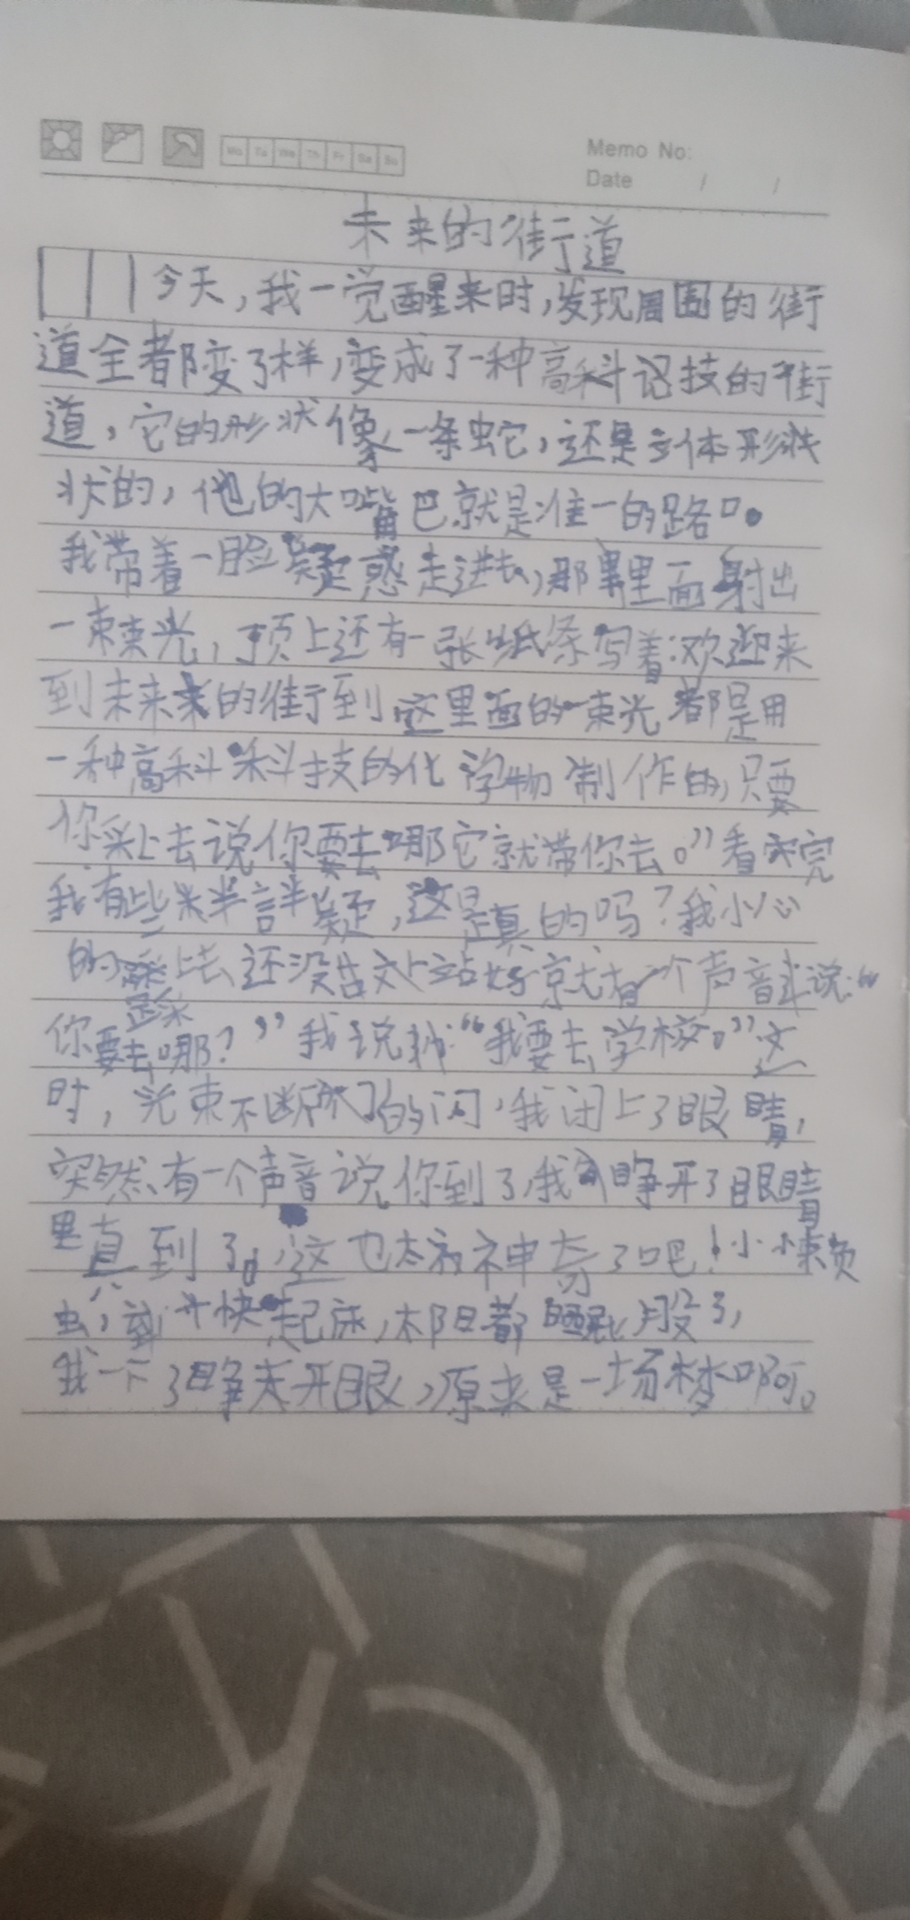 Memo No:
Mo Tu We Th Fr Sa Su
Date / /
未来的街道
今天，我一觉醒来时，发现周围的街
道全都变了样，变成了一种高科记技的街
道，它的形状像一条蛇，还是立体形状
状的，他的大嘴巴就是唯一的路口。
我带着一脸疑惑走进去，那里面射出
一束束光，顶上还有一张纸条写着：欢迎来
到未来的街到这里面的一束光都是用
一种高科科技的化学物制作的，只要
你踩上去说你要去哪它就带你去。”看完
我有些半訁半疑，这是真的吗？我小心
的踩上去还没站好就有一个声音说：“
你要去哪？”我说“我要去学校。”这
时，光束不断的闪，我闭上了眼睛，
突然有一个声音说你到了，我睁开了眼睛
里真到了，这也太神奇了吧！小懒
虫，快起床，太阳都晒屁股了，
我一下睁开眼，原来是一场梦啊。